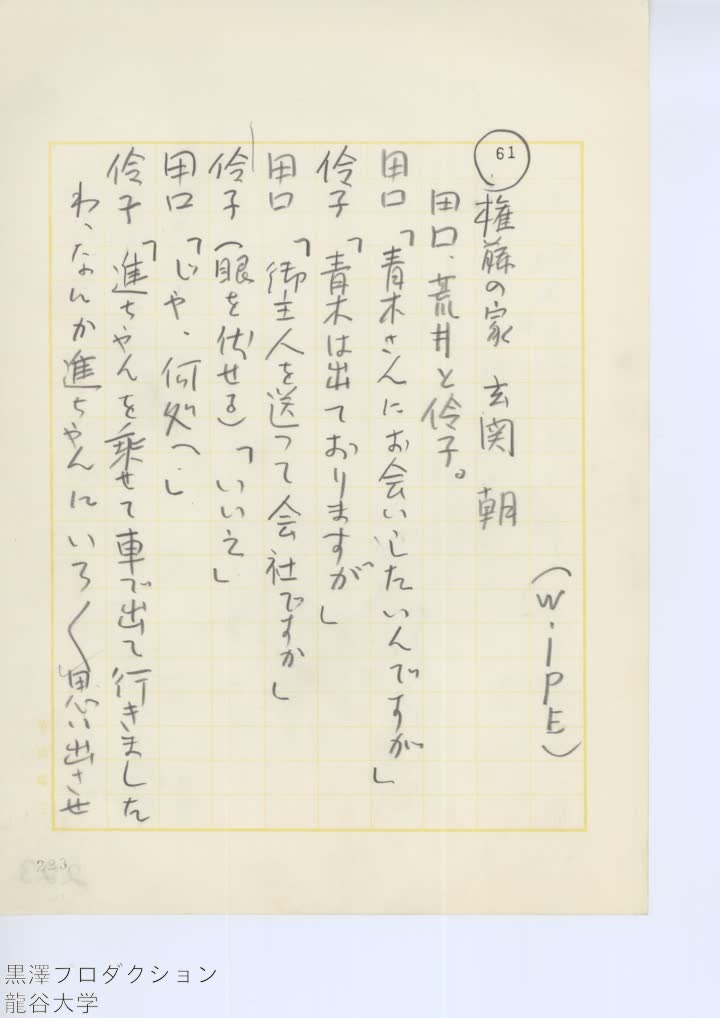 (WIPE)
61
権藤の家 玄関 朝
田口、荒井と伶子。
田口「青木さんにお会いしたいんですが」
伶子「青木は出ておりますが」
田口「御主人を送って会社ですか」
伶子(眼を伏せる)「いいえ」
田口「じゃ、何処へ」
伶子「進ちゃんを乗せて車で出て行きました
わ、なんか進ちゃんにいろ〱思い出させ
223
黒澤プロダクション
龍谷大学